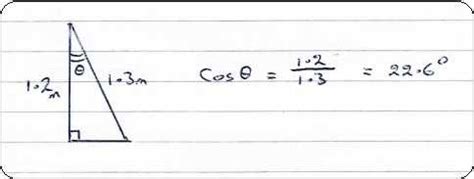 θ
1.2m
1.3m
Cos θ = 1.2/1.3 = 22.6°